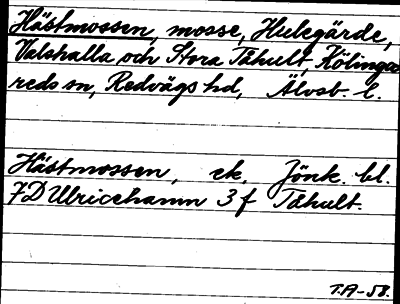 Hästmossen, mosse, Hulegärde,
Valshalla och Stora Tåhult, Kölinga-
reds sn, Redvägs hd, Älvsb. l.
Hästmossen, ek. Jönk. bl.
7D Ulricehamn 3f Tåhult.
T.A-58.